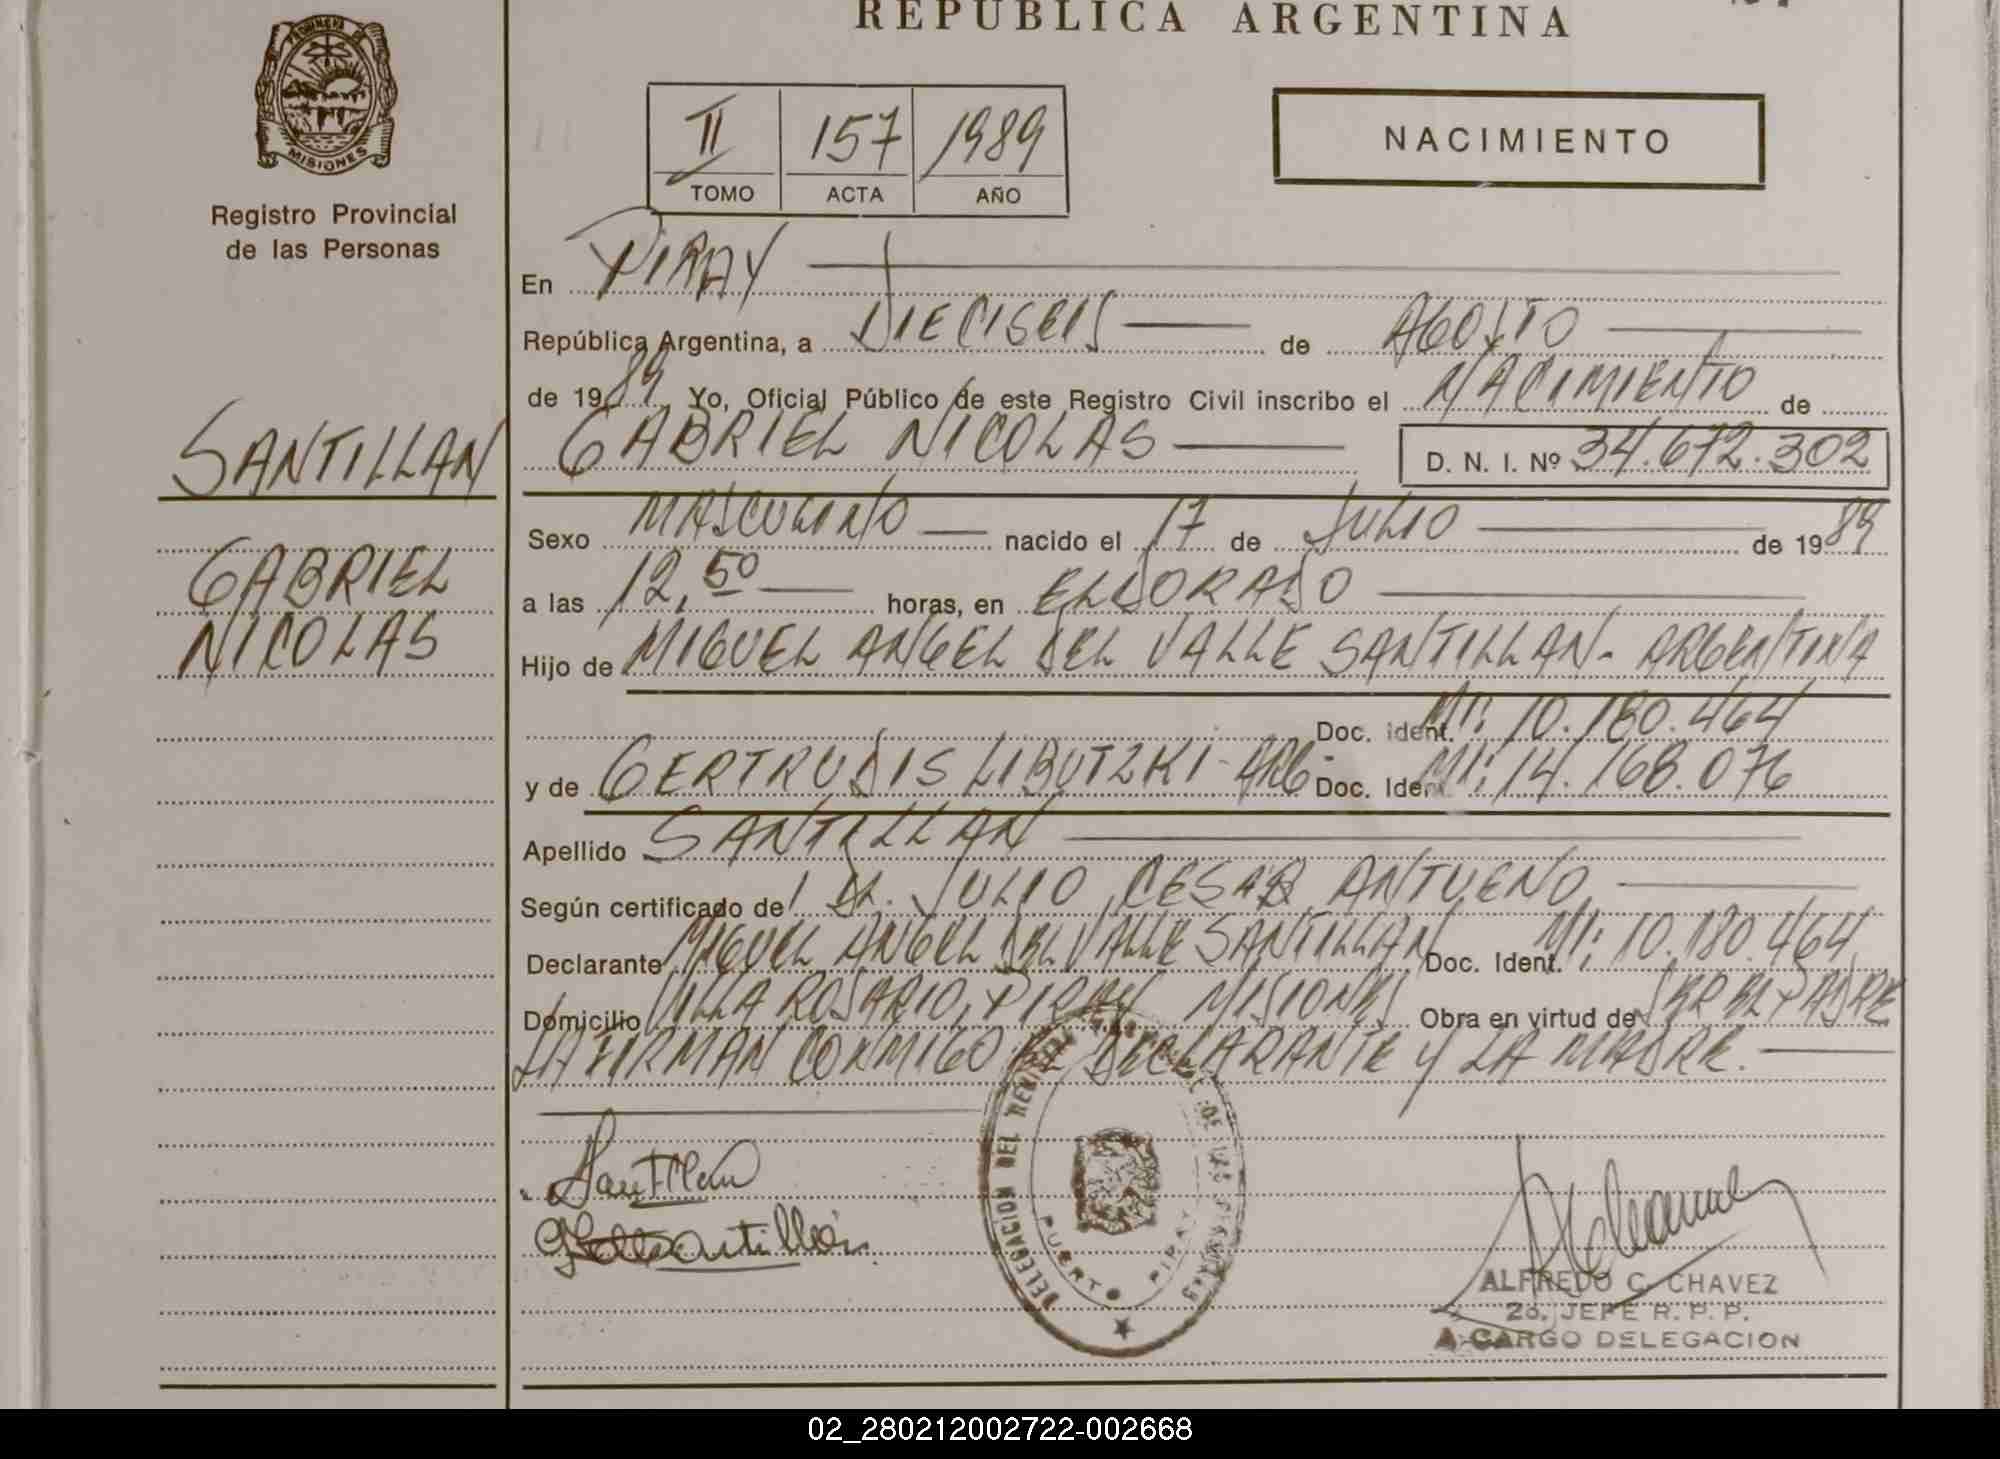 REPUBLICA ARGENTINA
PROVINCIA DE
MISIONES
Registro Provincial
de las Personas
II 157 1989
TOMO ACTA AÑO
NACIMIENTO
En PIRAY
República Argentina, a DIECISEIS de AGOSTO
de 1989 Yo, Oficial Público de este Registro Civil inscribo el NACIMIENTO de
GABRIEL NICOLAS D. N. I. Nº 34.672.302
SANTILLAN
GABRIEL
NICOLAS
Sexo MASCULINO nacido el 17 de JULIO de 1989
a las 12,50 horas, en ELDORADO
Hijo de MIGUEL ANGEL DEL VALLE SANTILLAN - ARGENTINA
Doc. Ident. MI: 10.180.464
y de GERTRUDIS LIBUTZKI - ARG - Doc. Ident. MI: 14.168.076
Apellido SANTILLAN
Según certificado de DR. JULIO CESAR ANTUENO
Declarante MIGUEL ANGEL DEL VALLE SANTILLAN Doc. Ident. MI: 10.180.464
Domicilio VILLA ROSARIO, PIRAY MISIONES Obra en virtud de SER EL PADRE
FIRMAN CONMIGO EL DECLARANTE Y LA MADRE.
Santillan
Santillán
DELEGACION DEL REGISTRO DE LAS PERSONAS
PUERTO PIRAY
ALFREDO C. CHAVEZ
2o. JEFE R. P. P.
A CARGO DELEGACION
02_280212002722-002668